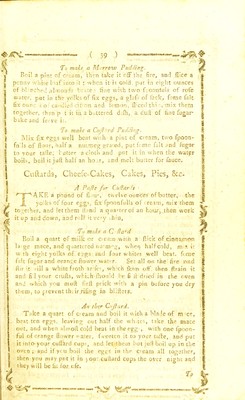 ( 39 )
To make a Marrow Pudding.
Boil a pint of cream, then take it off the fire, and slice a
penny white loaf into it; when it is cold put in eight ounces
of blanched almonds beat fine with two spoonfuls of rose
water, put in the yolks of six eggs, a glass of sack, some salt
six candied citron and lemon, sliced thin, mix them
together, then put it in a buttered dish, a dust of fine sugar
bake and serve it.
To make a Custard Pudding.
Mix six eggs well beat with a pint of cream, two spoon-
fuls of flour, half a nutmeg grated, put some salt and sugar
to your taste; butter a cloth and put it in when the water
boils, boil it just half an hour, and melt butter for sauce.
Custards, Cheese-Cakes, Cakes, Pies, &c.
A Paste for Custards
TAKE a pound of flour, twelve ounces of butter, the
yolks of four eggs, six spoonfuls of cream, mix them
together, and let them stand a quarter of an hour, then work
it up and down, and roll it very thin.
To make a Custard
Boil a quart of milk or cream with a stick of cinnamon
large mace, and quartered nutmeg, when half cold, mix it
with eight yolks of eggs and four whites well beat, some
salt sugar and orange flower water Set all on the fire and
stir it till a white froth arise, which skim off then strain it
and fill your crusts, which should be first dried in the oven
and which you must first prick with a pin before you dry
them, to prevent their rising in blisters.
Another Custard.
Take a quart of cream and boil it with a blade of mace,
beat ten eggs, leaving out half the whites, take the mace
out, and when almost cold beat to the eggs, with one spoon-
ful of orange flower water, sweeten it to your taste, and put
it into your custard cups, and let them but just boil up in the
oven; and if you boil the eggs in the cream all together,
then you may put it in your custard cups the over night and
they will be fit for use.
To